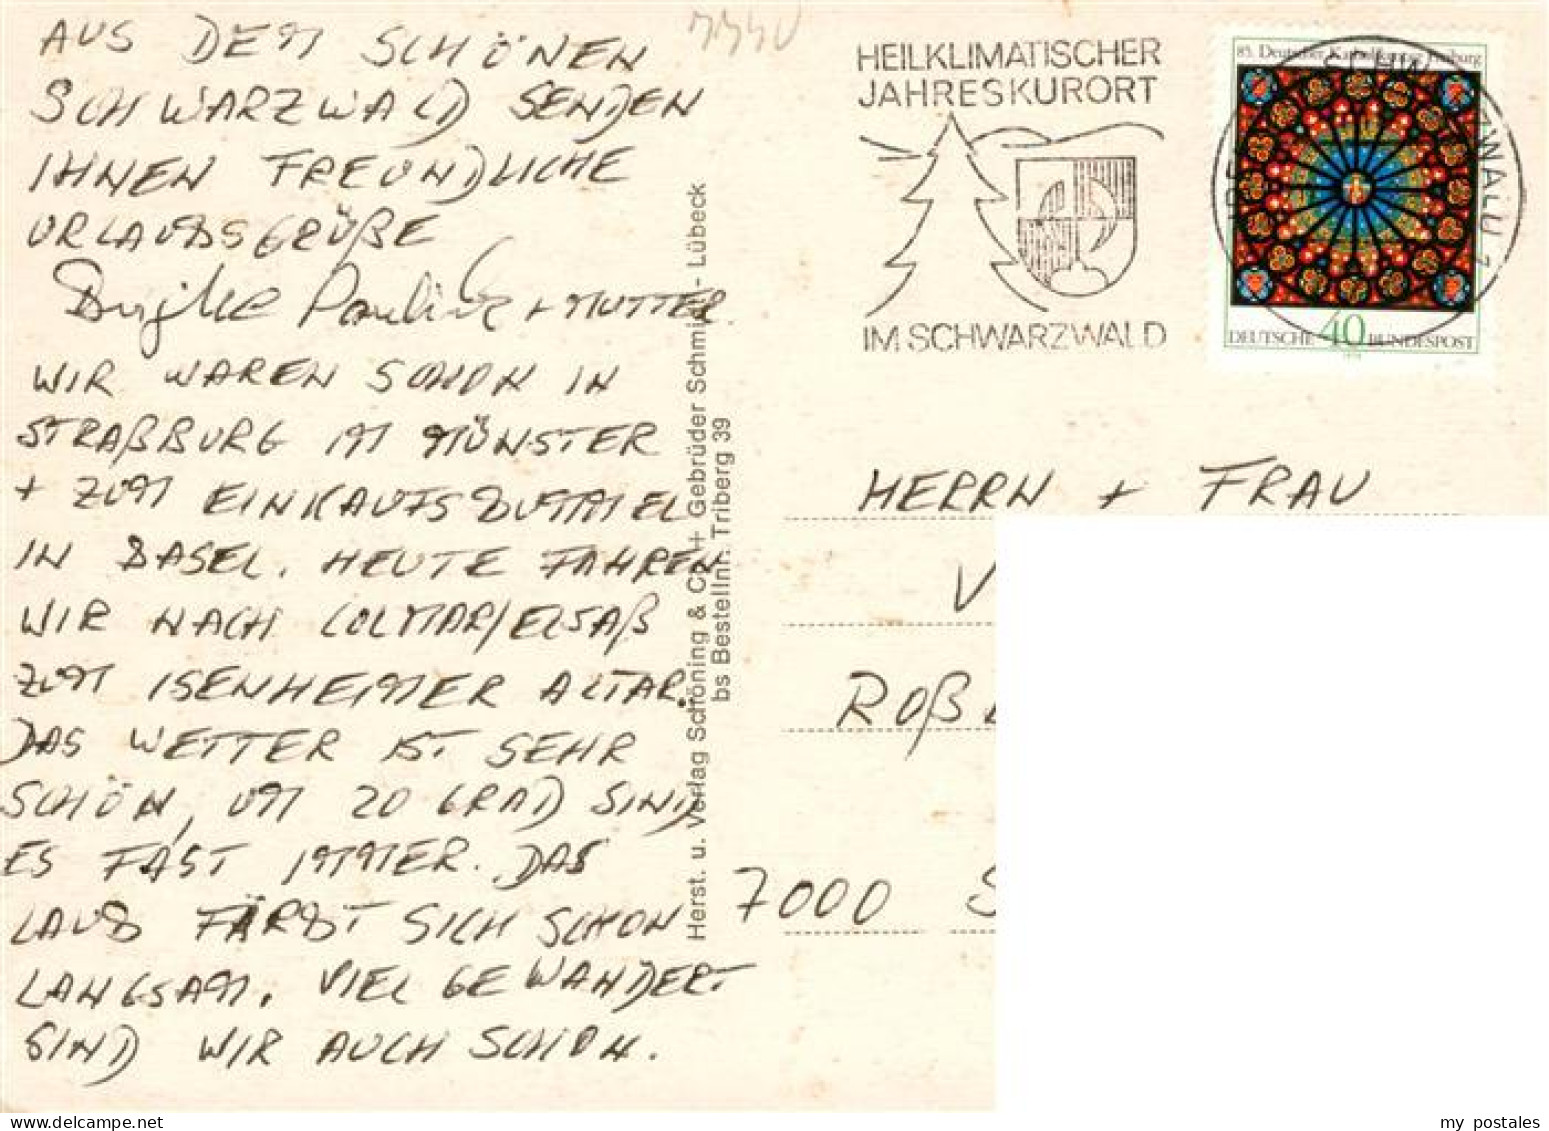 AUS DEM SCHÖNEN
SCHWARZWALD SENDEN
IHNEN FREUNDLICHE
URLAUBSGRÜßE
+ MUTTER
WIR WAREN SCHON IN
STRAßBURG IM MÜNSTER
+ ZUM EINKAUFSBUMMEL
IN BASEL. HEUTE FAHREN
WIR NACH COLMAR/ELSAß
ZUM ISENHEIMER ALTAR.
DAS WETTER IST SEHR
SCHÖN, UM 20 GRAD SIND
ES FAST IMMER. DAS
LAUB FÄRBT SICH SCHON
LANGSAM. VIEL GEWANDERT
SIND WIR AUCH SCHON.
Herst. u. Verlag Schöning & Co + Gebrüder Schmidt - Lübeck
bs Bestellnr. Triberg 39
HEILKLIMATISCHER
JAHRESKURORT
IM SCHWARZWALD
85. Deutscher Katholikentag Freiburg
DEUTSCHE 40 BUNDESPOST
HERRN + FRAU
V
ROß
7000 S
my postales